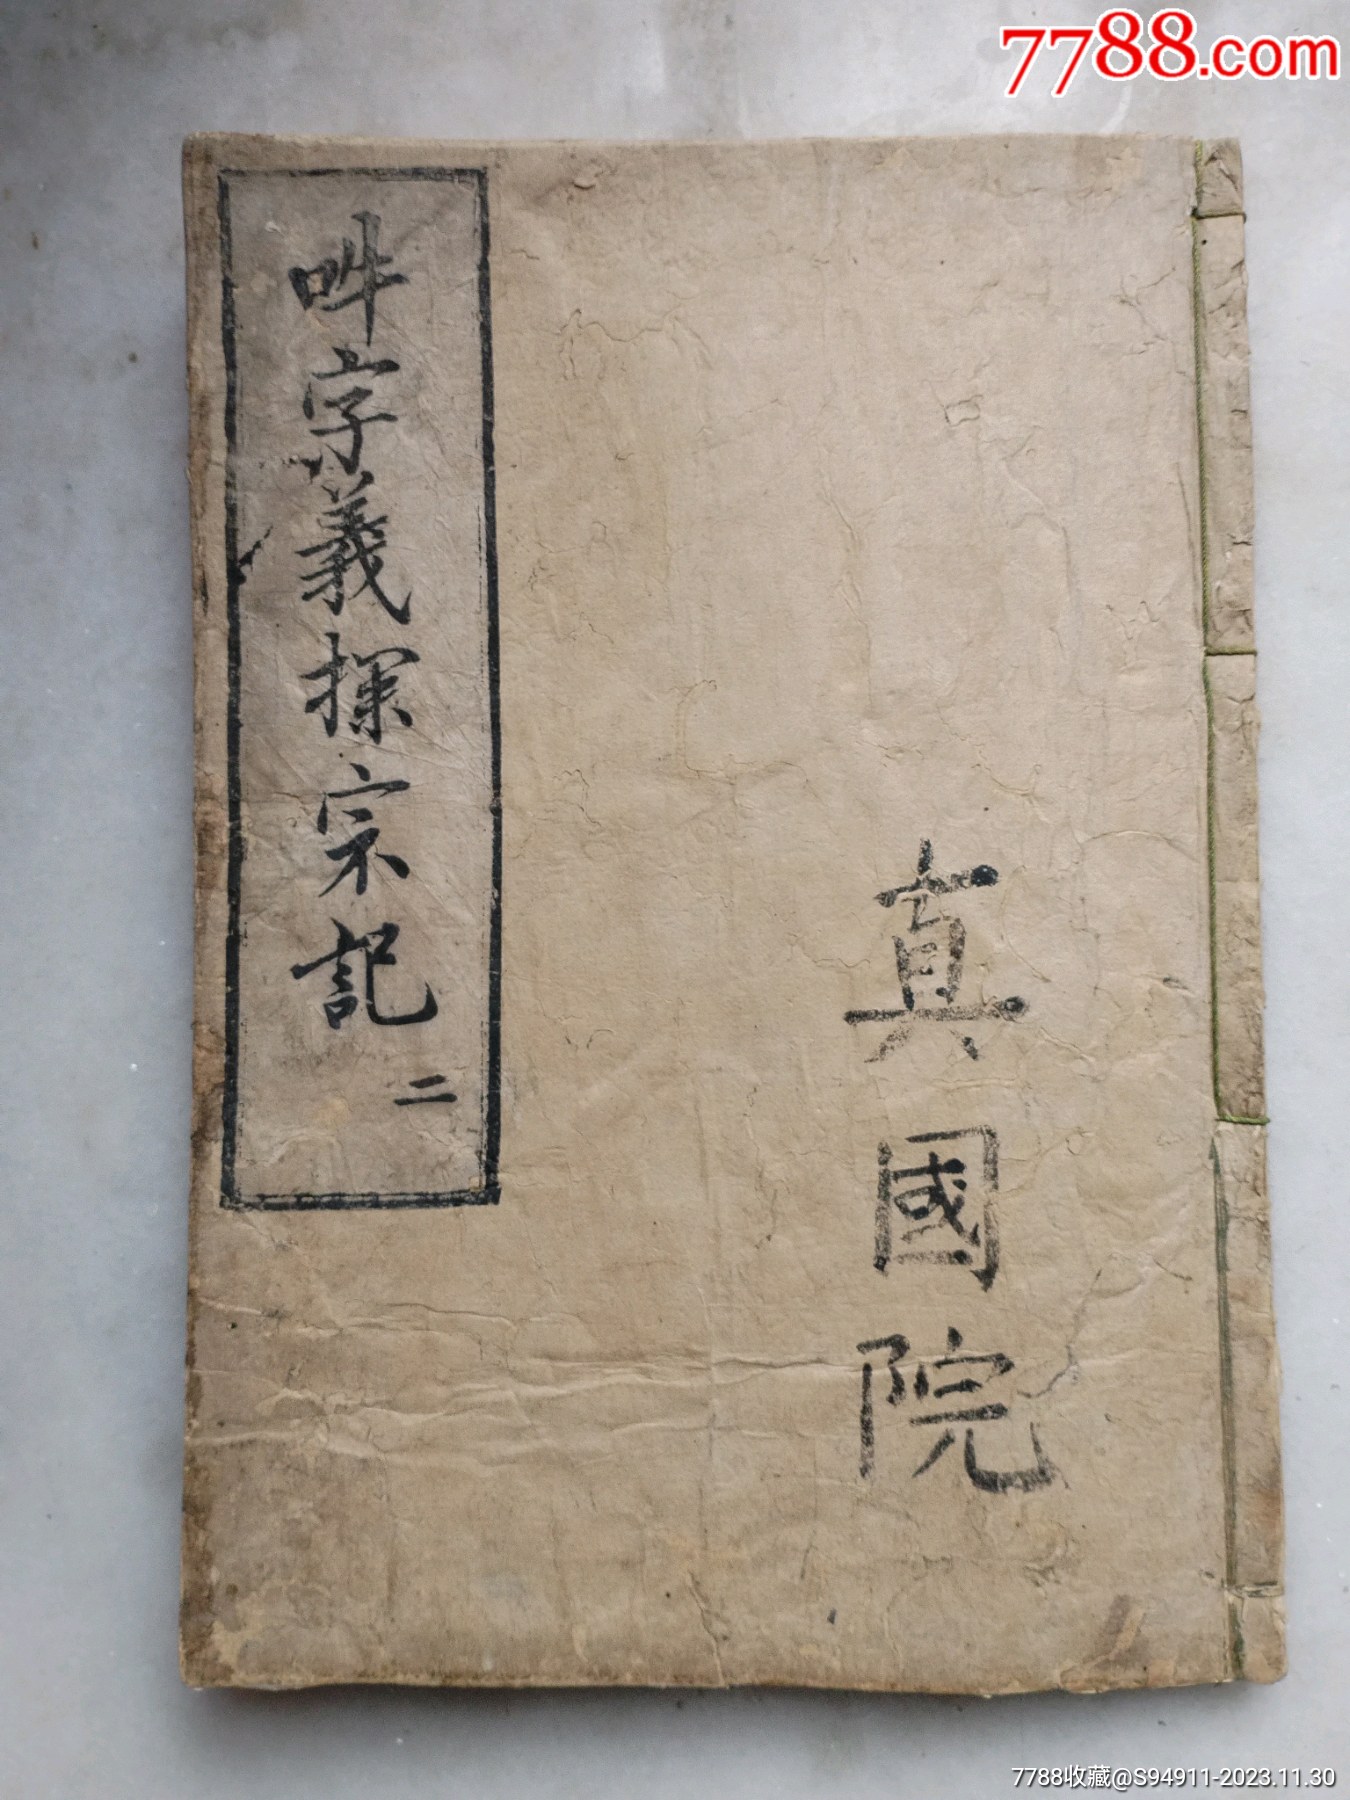 7788.com
吽字義探宗記
二
真國院
7788收藏@S94911-2023.11.30